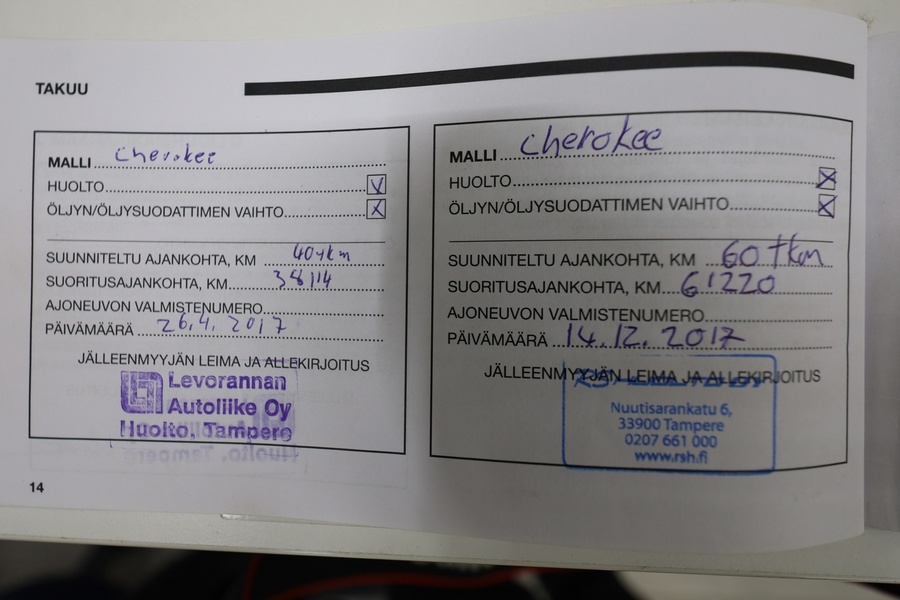 TAKUU
MALLI Cherokee
HUOLTO V
ÖLJYN/ÖLJYSUODATTIMEN VAIHTO X
SUUNNITELTU AJANKOHTA, KM 40tkm
SUORITUSAJANKOHTA, KM 38114
AJONEUVON VALMISTENUMERO
PÄIVÄMÄÄRÄ 26.4. 2017
JÄLLEENMYYJÄN LEIMA JA ALLEKIRJOITUS
Levorannan
Autoliike Oy
Huolto. Tampere
14
MALLI Cherokee
HUOLTO X
ÖLJYN/ÖLJYSUODATTIMEN VAIHTO X
SUUNNITELTU AJANKOHTA, KM 60 tkm
SUORITUSAJANKOHTA, KM 61220
AJONEUVON VALMISTENUMERO
PÄIVÄMÄÄRÄ 14.12. 2017
JÄLLEENMYYJÄN LEIMA JA ALLEKIRJOITUS
Nuutisarankatu 6,
33900 Tampere
0207 661 000
www.rsh.fi